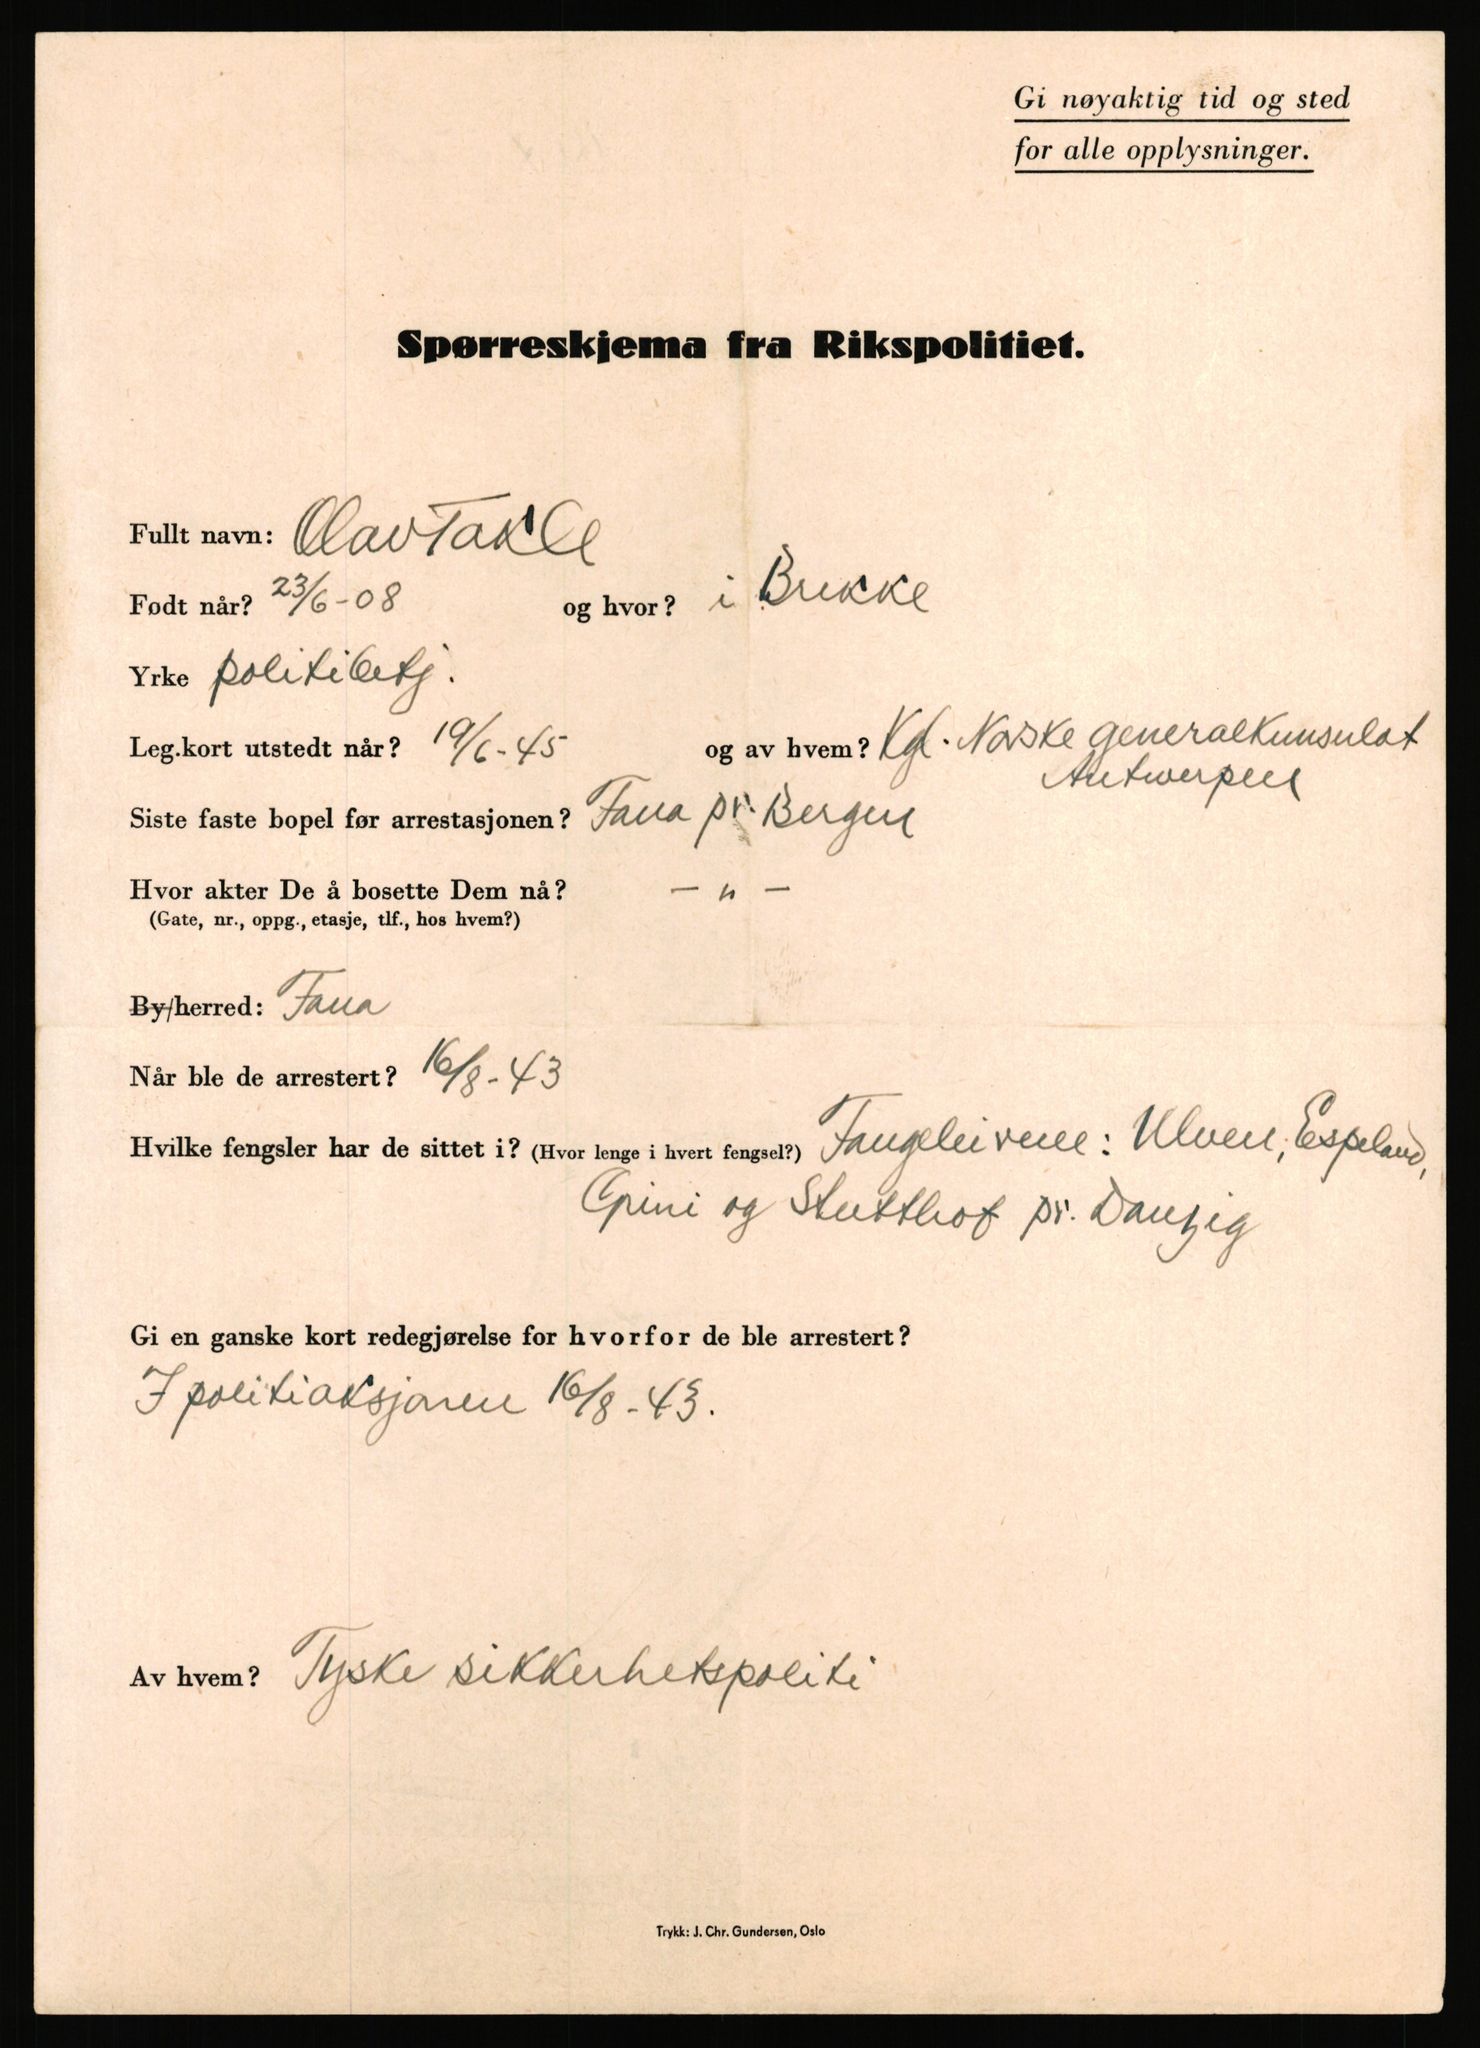 Gi nøyaktig tid og sted
for alle opplysninger.
Spørreskjema fra Rikspolitiet.
Fullt navn: Olav Takle
Født når? 23/6-08 og hvor? i Brekke
Yrke politibetj.
Leg.kort utstedt når? 19/6-45 og av hvem? Kgl. Norske generalkunsulat
Antwerpen
Siste faste bopel før arrestasjonen? Fana pr. Bergen
Hvor akter De å bosette Dem nå? - " -
(Gate, nr., oppg., etasje, tlf., hos hvem?)
By/herred: Fana
Når ble de arrestert? 16/8-43
Hvilke fengsler har de sittet i? (Hvor lenge i hvert fengsel?) Fangeleirene: Ulven, Espeland,
Grini og Stutthof pr. Danzig
Gi en ganske kort redegjørelse for hvorfor de ble arrestert?
I politiaksjonen 16/8-43.
Av hvem? Tyske sikkerhetspoliti
Trykk: J. Chr. Gundersen, Oslo